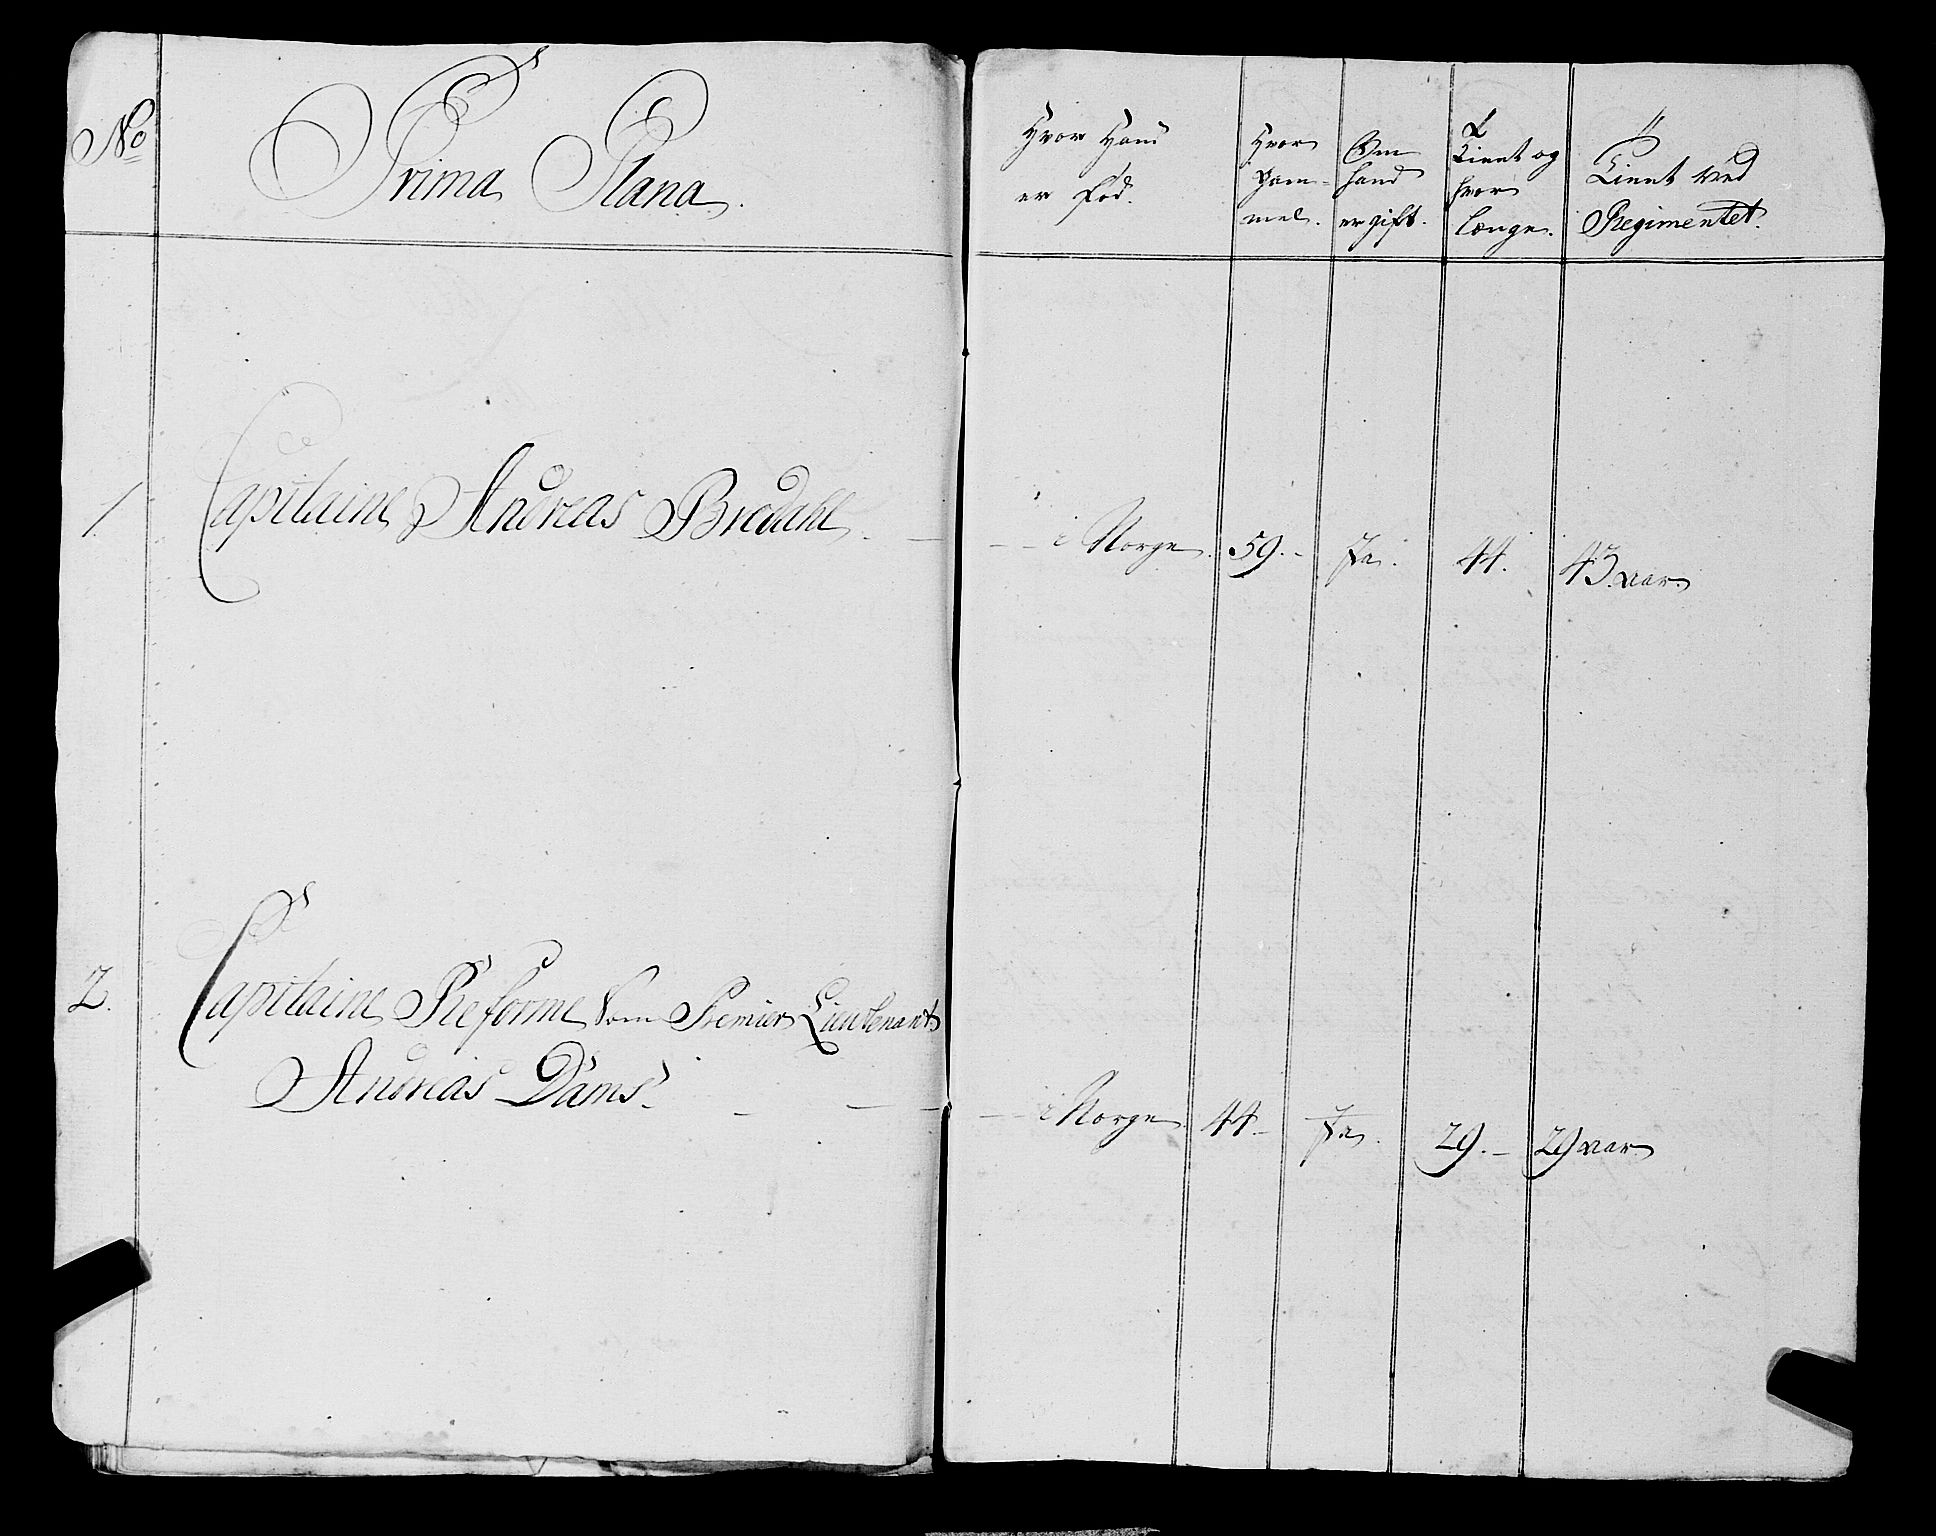 No
Prima Plana.
Hvor Hand
er Fød.
Hvor
Gam-
mel.
Om
hand
er gift.
Tient og
hvor
længe.
Tient ved
Regimentet.
1.
Capitaine Andreas Bredahl.
i Norge.
59.
Ja.
44.
43 aar
2.
Capitaine Reforme som Premier Lieutenant
Andreas Dams.
i Norge
44
Ja.
29.
29 aar